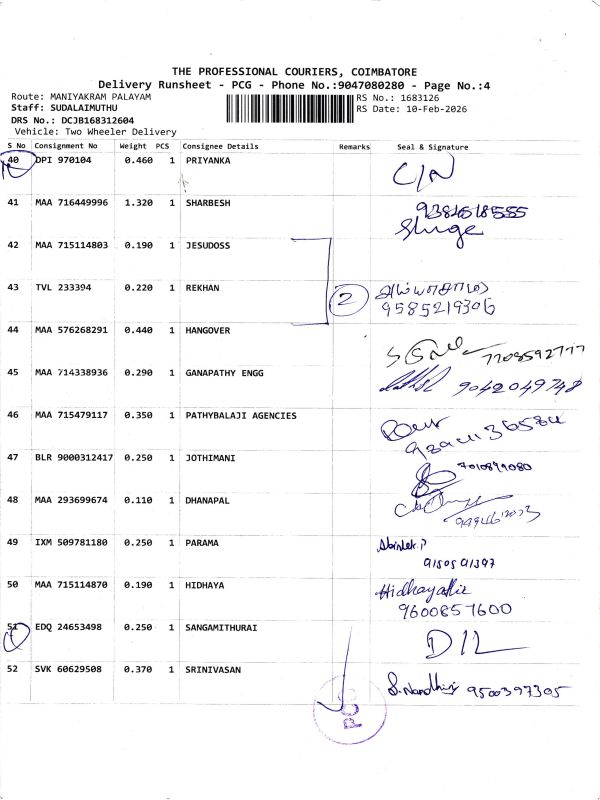 THE PROFESSIONAL COURIERS, COIMBATORE
Delivery Runsheet - PCG - Phone No.:9047080280 - Page No.:4
Route: MANIYAKRAM PALAYAM
RS No.: 1683126
Staff: SUDALAIMUTHU
RS Date: 10-Feb-2026
DRS No.: DCJB168312604
Vehicle: Two Wheeler Delivery
S No Consignment No Weight PCS Consignee Details Remarks Seal & Signature
40 DPI 970104 0.460 1 PRIYANKA C/N
41 MAA 716449996 1.320 1 SHARBESH
42 MAA 715114803 0.190 1 JESUDOSS
43 TVL 233394 0.220 1 REKHAN 2
9585219306
44 MAA 576268291 0.440 1 HANGOVER
45 MAA 714338936 0.290 1 GANAPATHY ENGG 9042049748
46 MAA 715479117 0.350 1 PATHYBALAJI AGENCIES
47 BLR 9000312417 0.250 1 JOTHIMANI
48 MAA 293699674 0.110 1 DHANAPAL
49 IXM 509781180 0.250 1 PARAMA
50 MAA 715114870 0.190 1 HIDHAYA
9600857600
51 EDQ 24653498 0.250 1 SANGAMITHURAI D/L
52 SVK 60629508 0.370 1 SRINIVASAN 9500397305
PCG